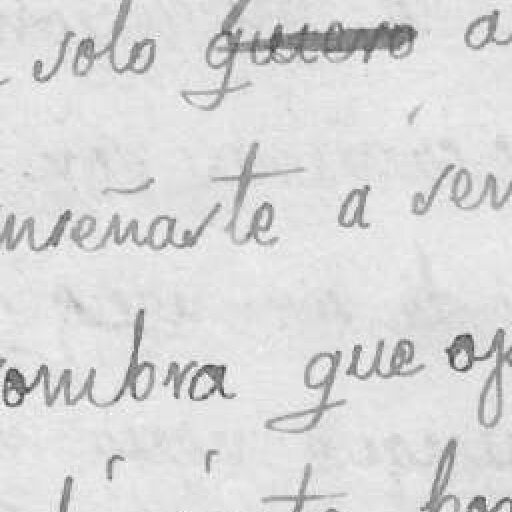 solo quiero a
nseñarte a ser
ombra que oj